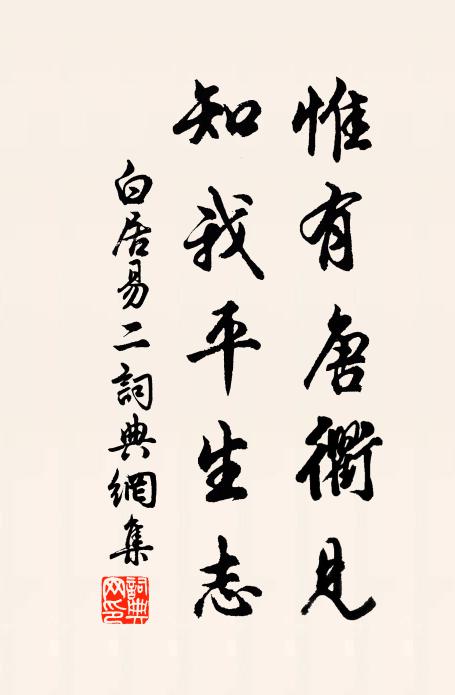 惟有唐衢見
知我平生志
白居易二詞典網集
詞典
网印